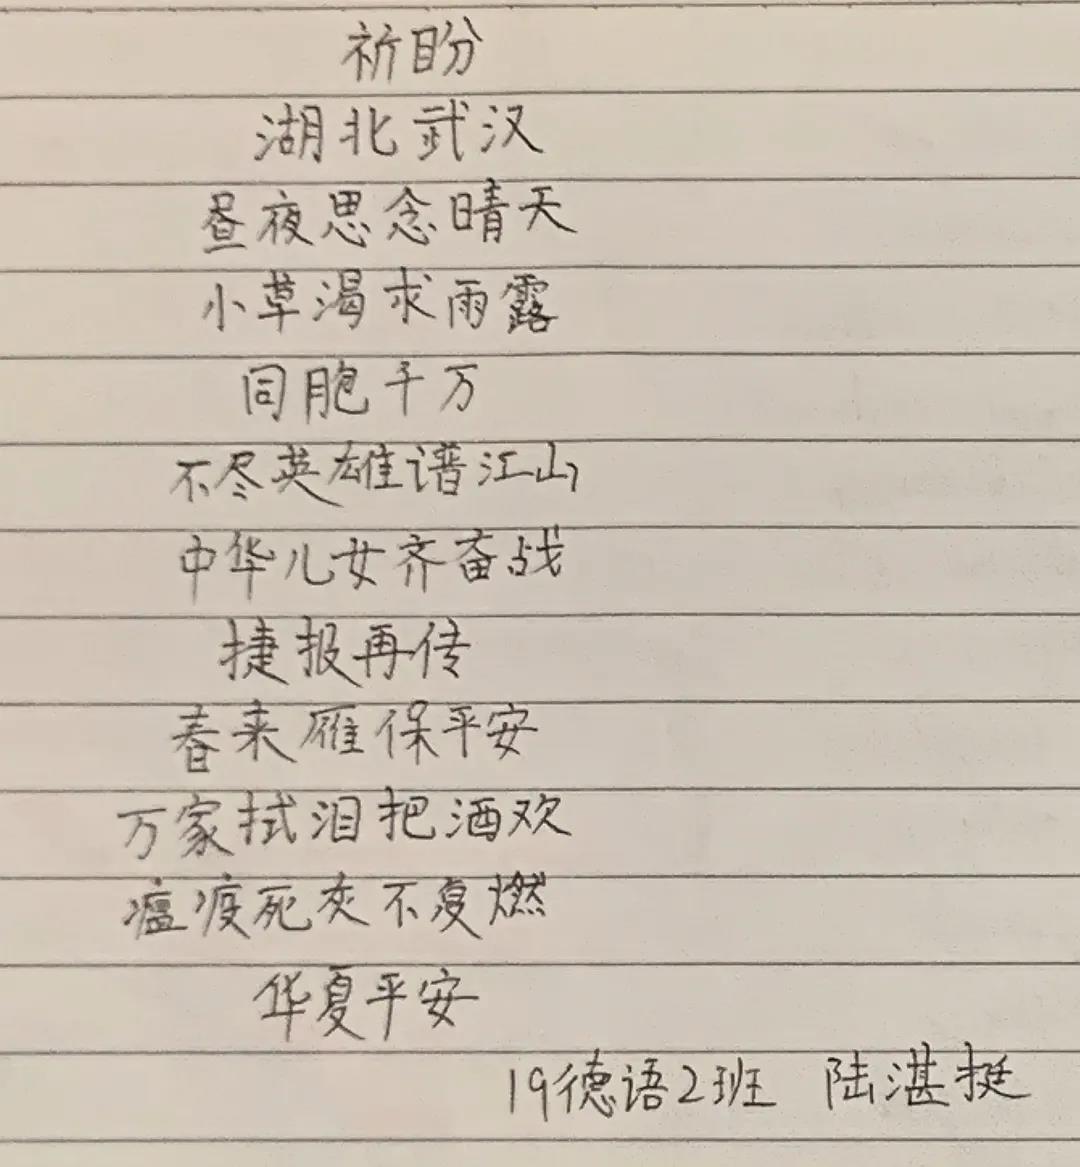 祈盼
湖北武汉
昼夜思念晴天
小草渴求雨露
同胞千万
不尽英雄谱江山
中华儿女齐奋战
捷报再传
春来雁保平安
万家拭泪把酒欢
瘟疫死灰不复燃
华夏平安
19德语2班 陆湛挺